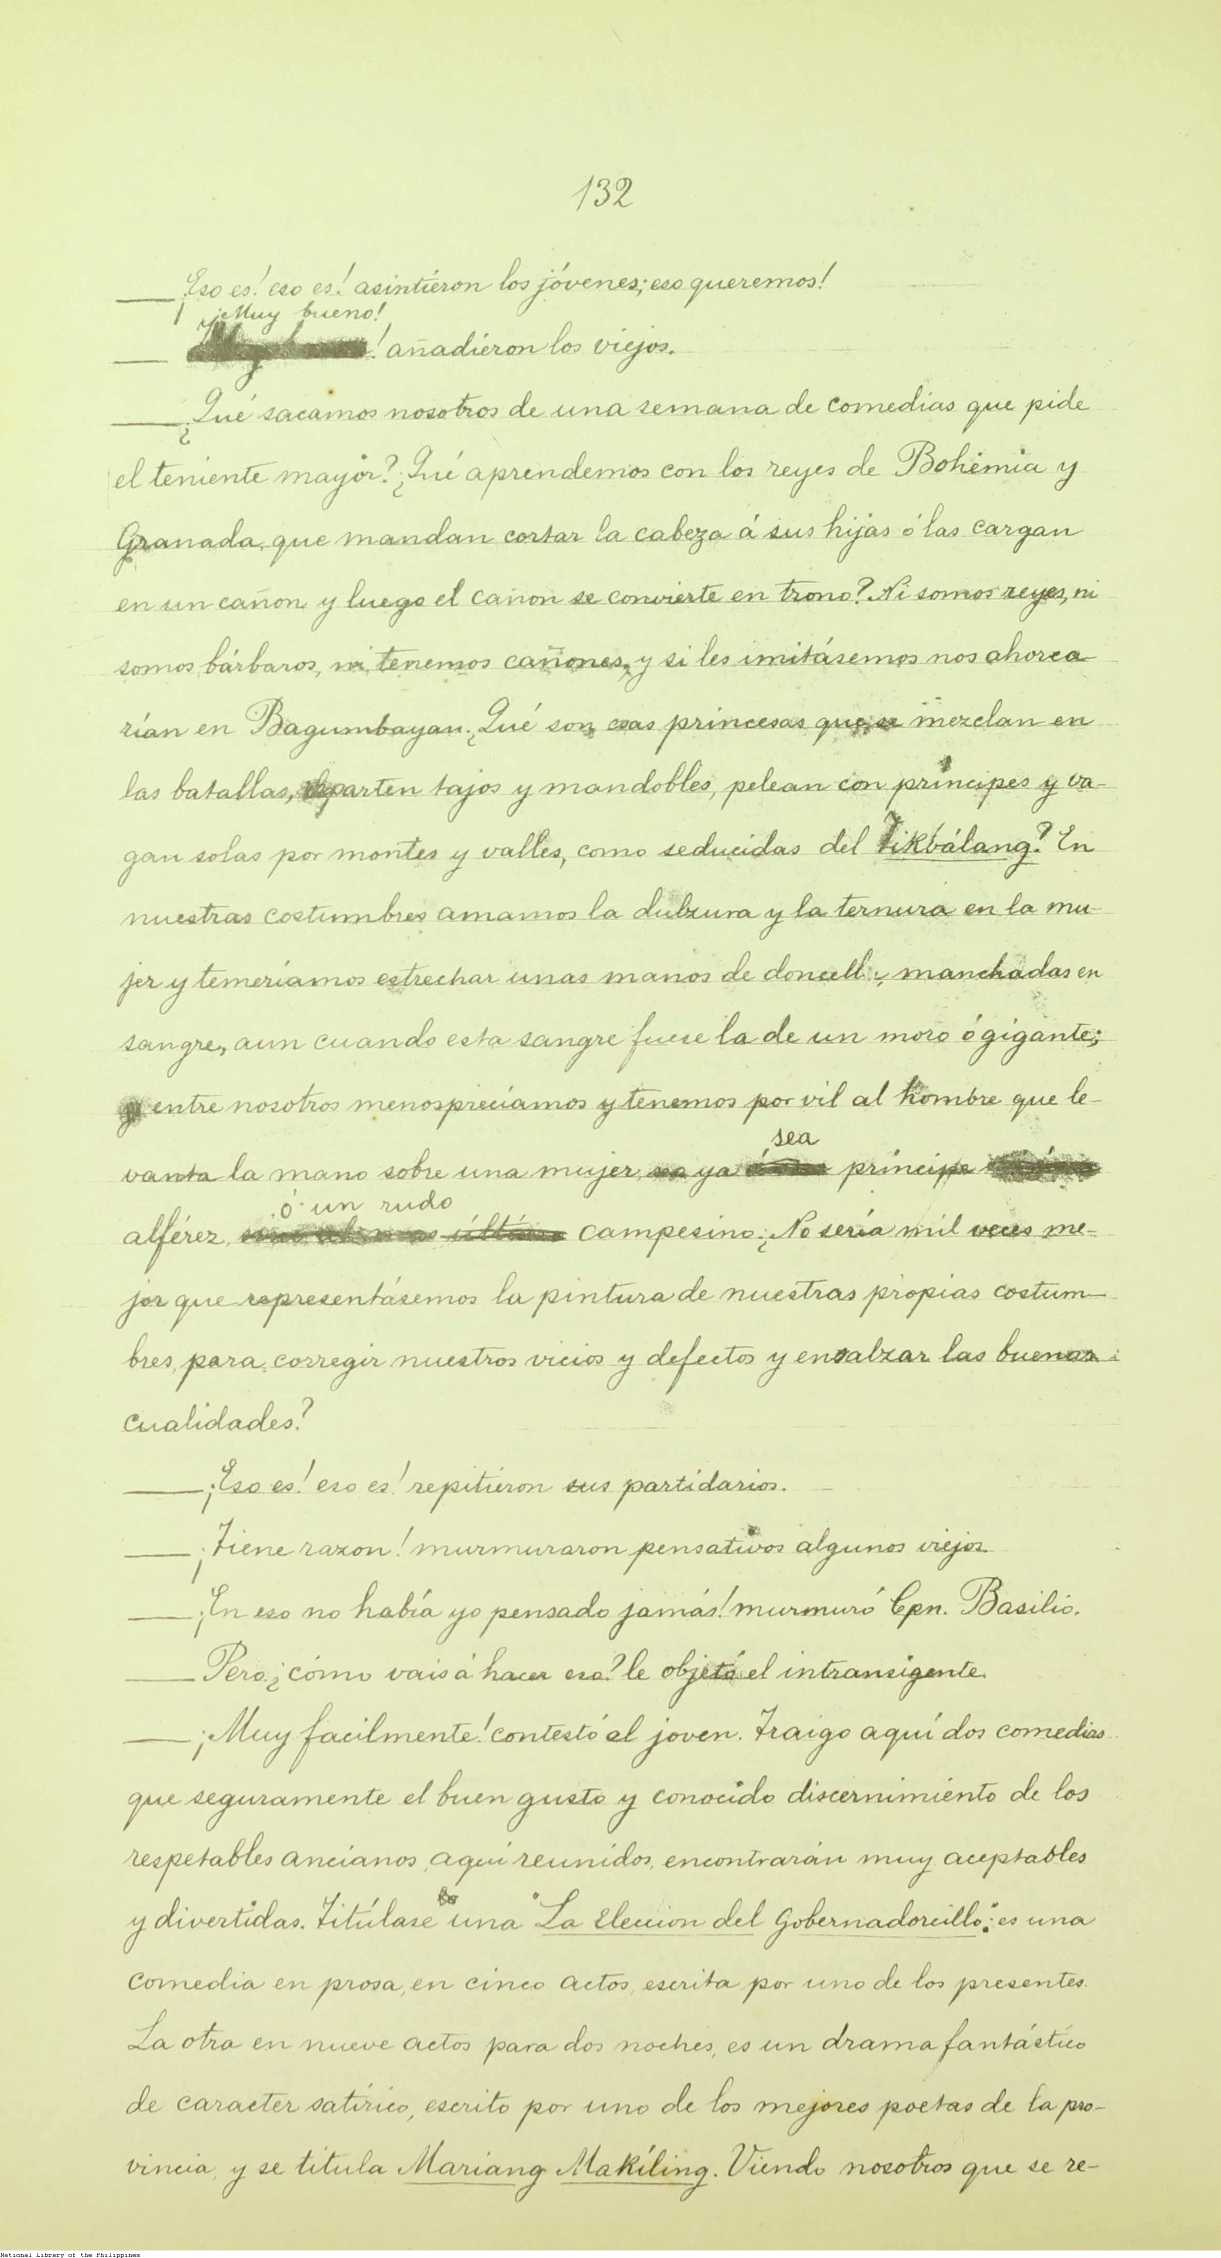 132
— ¡Eso es! eso es! asintieron los jóvenes; eso queremos!
¡Muy bueno!
— ! añadieron los viejos.
— ¿Qué sacamos nosotros de una semana de comedias que pide
el teniente mayor? ¿Qué aprendemos con los reyes de Bohemia y
Granada, que mandan cortar la cabeza á sus hijas ó las cargan
en un cañon y luego el cañon se convierte en trono? Ni somos reyes, ni
somos bárbaros, ni tenemos cañones, y si les imitásemos nos ahorca
rían en Bagumbayan. ¿Qué son esas princesas que se mezclan en
las batallas, reparten tajos y mandobles, pelean con príncipes y va-
gan solas por montes y valles, como seducidas del Tikbálang? En
nuestras costumbres amamos la dulzura y la ternura en la mu-
jer y temeríamos estrechar unas manos de doncella, manchadas en
sangre, aun cuando esta sangre fuese la de un moro ó gigante;
entre nosotros menospreciamos y tenemos por vil al hombre que le-
sea
vanta la mano sobre una mujer, ya príncipe
ó un rudo
alférez, campesino. ¿No sería mil veces me-
jor que representásemos la pintura de nuestras propias costum-
bres, para corregir nuestros vicios y defectos y ensalzar las buenas
cualidades?
— ¡Eso es! eso es! repitieron sus partidarios.
— ¡Tiene razon! murmuraron pensativos algunos viejos.
— ¡En eso no había yo pensado jamás! murmuró Cpn. Basilio.
— Pero ¿cómo vais á hacer eso? le objetó el intransigente.
— ¡Muy facilmente! contestó el joven. Traigo aquí dos comedias
que seguramente el buen gusto y conocido discernimiento de los
respetables ancianos, aquí reunidos, encontrarán muy aceptables
y divertidas. Titúlase una "La Eleccion del Gobernadorcillo"; es una
comedia en prosa, en cinco actos, escrita por uno de los presentes.
La otra en nueve actos para dos noches, es un drama fantástico
de caracter satírico, escrito por uno de los mejores poetas de la pro-
vincia, y se titula Mariang Makíling. Viendo nosotros que se re-
National Library of the Philippines